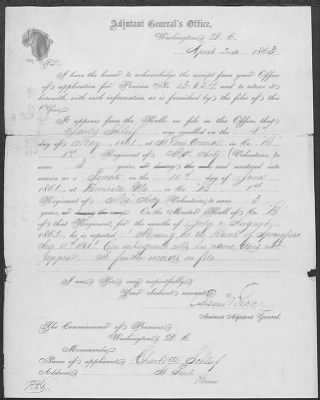 Adjutant General's Office,
Washington, D. C.
April 2nd, 1863
Sir:
I have the honor to acknowledge the receipt from your Office
of application for Pension No. 13.654, and to return it
herewith, with such information as is furnished by the files of this
Office.
It appears from the Rolls on file in this Office, that
Charles was enrolled on the
day of 1861, at in Co.
1st Regiment of Mo. Arty Volunteers, to
serve years, or during the war and mustered into
service as a Private on the day of June
1861, at Mo. in Co. B. 1st
Regiment of Mo. Arty Volunteers, to serve 3
years, or during the war. On the Muster Roll of Co. B
of that Regiment, for the months of July & August,
186 he is reported "Missing at the Battle of Springfield
Aug. 10" 1861" On subsequent rolls his name does not
appear. No further records on file
I am, Sir, very respectfully,
Your obedient servant,
Assistant Adjutant General.
The Commissioner of Pensions
Washington, D. C.
Memoranda.
Name of applicant, Charlotte
Address, St. Louis